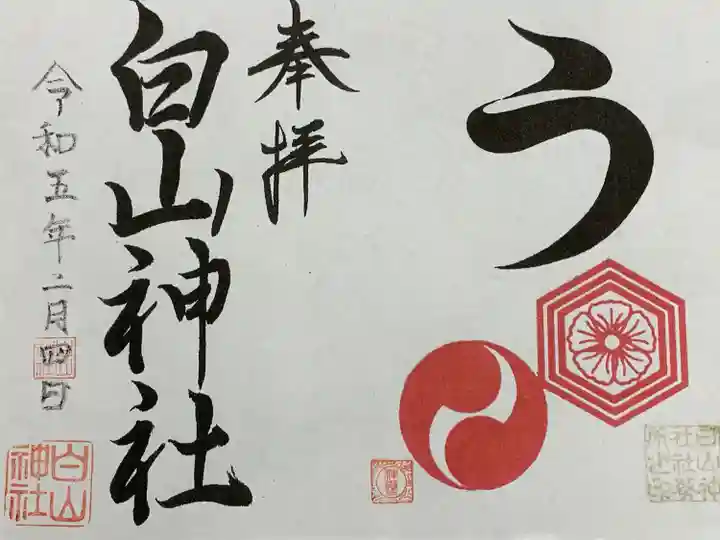 う
奉拝
白山神社
令和五年二月四日
白山神社